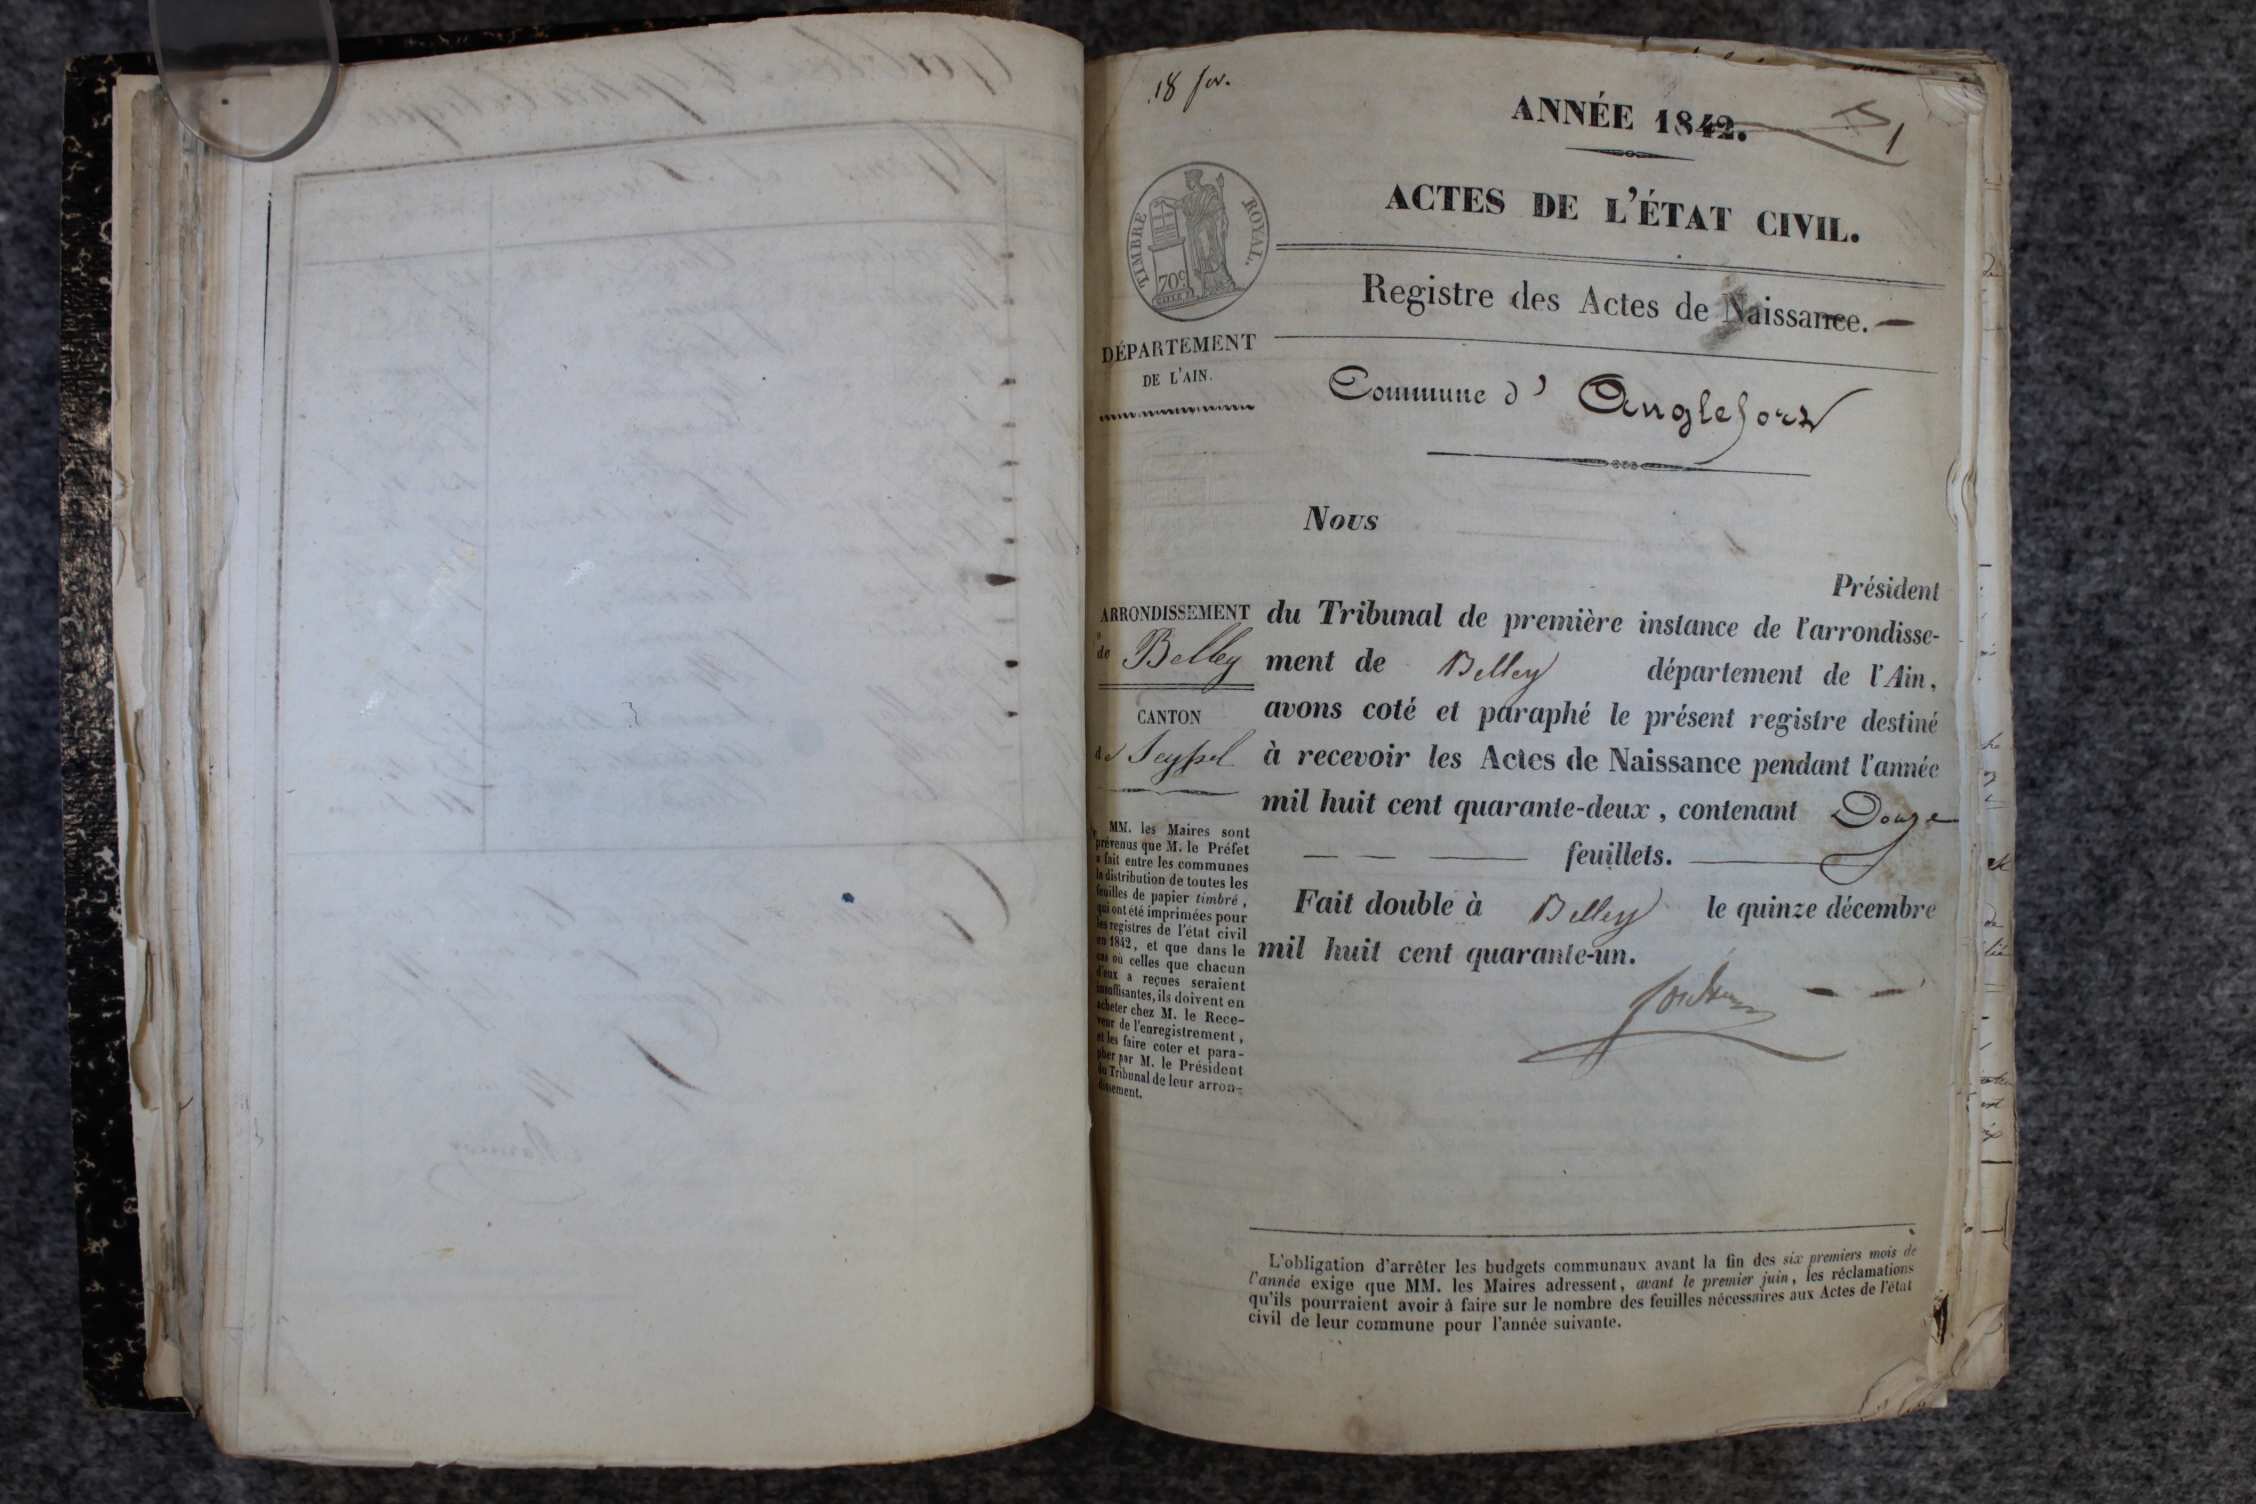 18 fer.
ANNÉE 1842.
1
ACTES DE L'ÉTAT CIVIL.
TIMBRE ROYAL.
70c
Registre des Actes de Naissance.
DÉPARTEMENT
DE L'AIN.
Commune d' Anglefort
Nous
Président
ARRONDISSEMENT
de Belley
CANTON
de Seyssel
du Tribunal de première instance de l'arrondisse-
ment de Belley département de l'Ain,
avons coté et paraphé le présent registre destiné
à recevoir les Actes de Naissance pendant l'année
mil huit cent quarante-deux, contenant Douze
feuillets.
Fait double à Belley le quinze décembre
mil huit cent quarante-un.
MM. les Maires sont
prévenus que M. le Préfet
a fait entre les communes
la distribution de toutes les
feuilles de papier timbré,
qui ont été imprimées pour
les registres de l'état civil
en 1842, et que dans le
cas où celles que chacun
d'eux a reçues seraient
insuffisantes, ils doivent en
acheter chez M. le Rece-
veur de l'enregistrement,
et les faire coter et para-
pher par M. le Président
du Tribunal de leur arron-
dissement.
L'obligation d'arrêter les budgets communaux avant la fin des six premiers mois de
l'année exige que MM. les Maires adressent, avant le premier juin, les réclamations
qu'ils pourraient avoir à faire sur le nombre des feuilles nécessaires aux Actes de l'état
civil de leur commune pour l'année suivante.